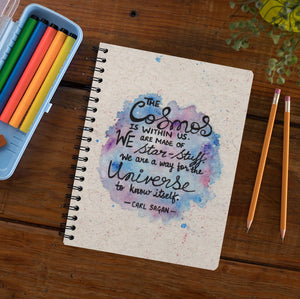 THE
Cosmos
IS WITHIN US.
WE ARE MADE OF
Star-Stuff.
We are a way for the
Universe
to know itself.
— CARL SAGAN —